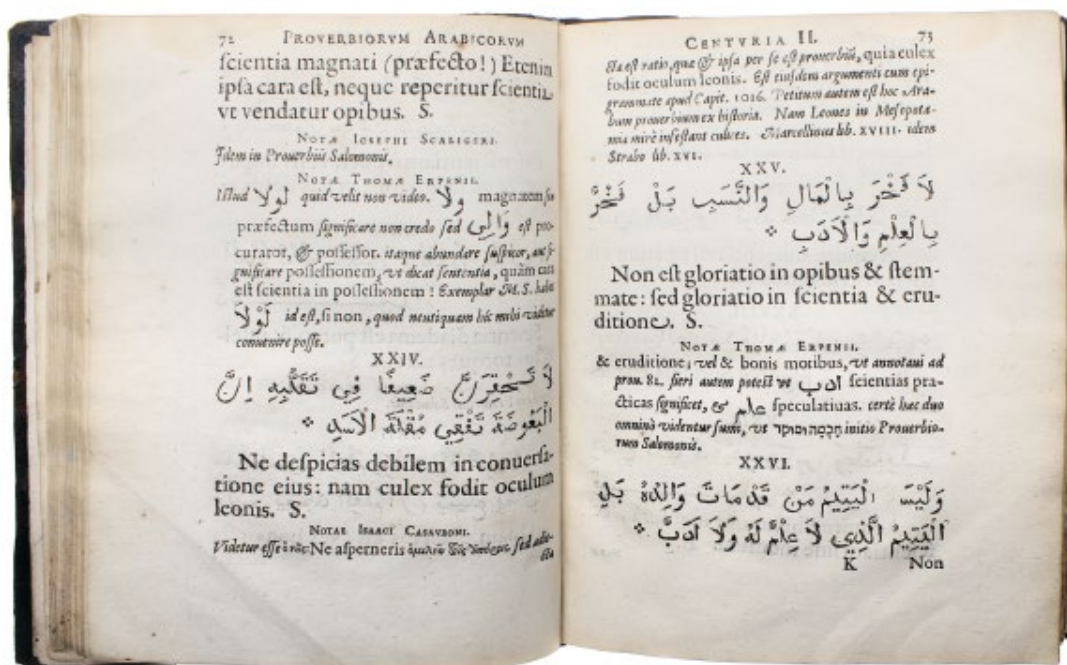 72 PROVERBIORVM ARABICORVM
ſcientia magnati (præfecto!) Etenim
ipſa cara eſt, neque reperitur ſcientia
vt vendatur opibus. S.
NOTÆ IOSEPHI SCALIGERI.
Idem in Prouerbiis Salomonis.
NOTÆ THOMÆ ERPENII.
Iſtud لولا quid velit non video. ولا magnatem ſiu
præfectum ſignificare non credo ſed وَالِى eſt pro-
curator, & poſſeſſor. itaque abundare ſuſpicor, aut ſi-
gnificare poſſeſſionem, vt dicat ſententia, quàm cara
eſt ſcientia in poſſeſſionem! Exemplar M. S. habet
لَوْلَا id eſt, ſi non, quod neutiquam hic mihi videtur
conuenire poſſe.
XXIV.
لَا تَحْقِرَنَّ ضَعِيفًا فِي تَقَلُّبِهِ إِنَّ
الْبَعُوضَةَ تَفْقِي مُقْلَةَ الْأَسَدِ
Ne deſpicias debilem in conuerſa-
tione eius: nam culex fodit oculum
leonis. S.
NOTAE ISAACI CASAVBONI.
Videtur eſſe Ne aſperneris ſed adie-
cta
CENTVRIA II. 73
cta eſt ratio, quæ & ipſa per ſe eſt prouerbiũ, quia culex
fodit oculum leonis. Eſt eiuſdem argumenti cum epi-
grammate apud Capit. 1016. Petitum autem eſt hoc Ara-
bum prouerbium ex hiſtoria. Nam Leones in Meſopota-
mia mirè infeſtant culices. Marcellinus lib. XVIII. idem
Strabo lib. XVI.
XXV.
لَا فَخْرَ بِالْمَالِ وَالنَّسَبِ بَلْ فَخْرٌ
بِالْعِلْمِ وَالْأَدَبِ
Non eſt gloriatio in opibus & ſtem-
mate: ſed gloriatio in ſcientia & eru-
ditione. S.
NOTÆ THOMÆ ERPENII.
& eruditione; vel & bonis moribus, vt annotaui ad
prou. 82. fieri autem poteſt vt أدب ſcientias pra-
cticas ſignificet, & علم ſpeculatiuas. certè hæc duo
omninò videntur ſumi, vt חכמה ומוסר initio Prouerbio-
rum Salomonis.
XXVI.
وَلَيْسَ الْيَتِيمُ مَنْ قَدْ مَاتَ وَالِدُهُ بَلِ
الْيَتِيمُ الَّذِي لَا عِلْمَ لَهُ وَلَا أَدَبٌ
K Non